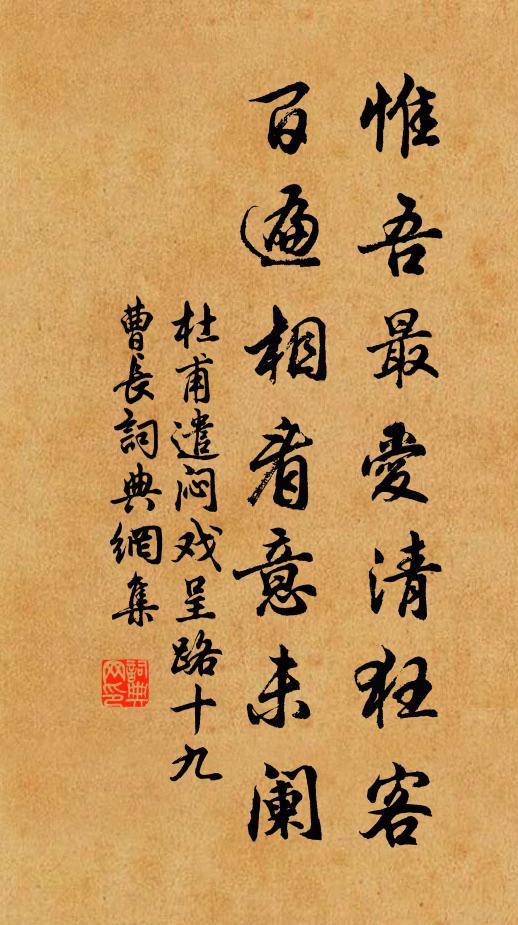 惟吾最愛清狂客
百遍相看意未阑
杜甫遣闷戏呈路十九
曹長詞典網集
詞典網印